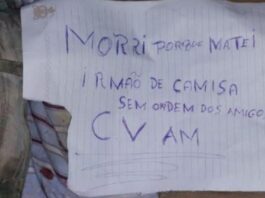 MORRi PORQUE MATEi
iRMÃO DE CAMiSA
SEM ONDEM DOS AMiGO
CV AM